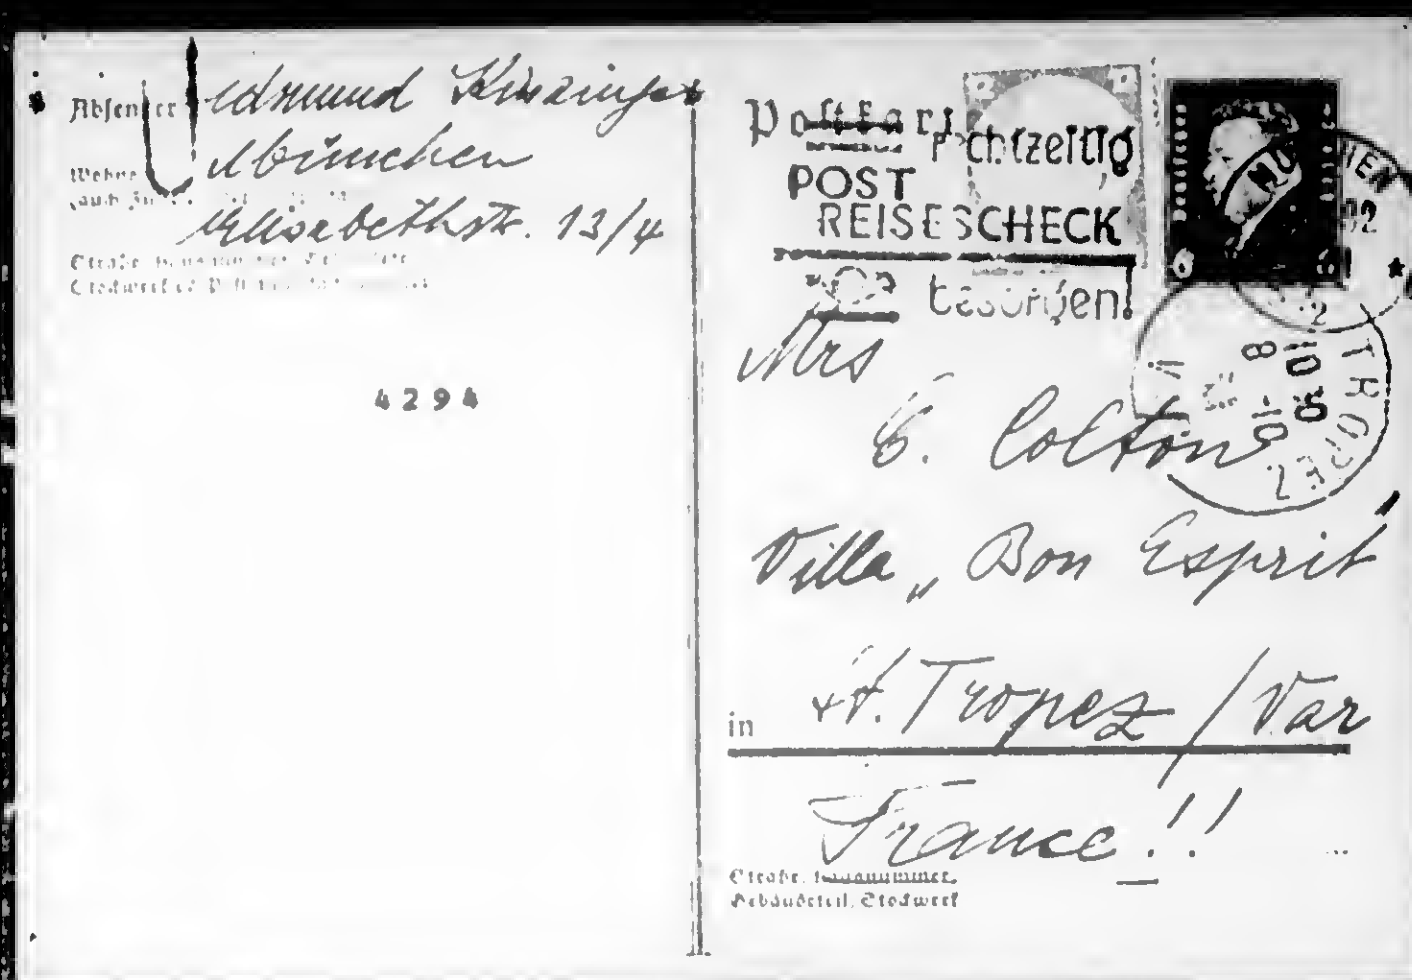 Absender
Edmund Kinzinger
München
Elisabethstr. 13/4
4294
Postkarte
rechtzeitig
POST
REISESCHECK
besorgen!
6
TROPEZ
Mrs
E. Colton
Villa „Bon Esprit"
in St. Tropez / Var
France!!
Straße, Hausnummer,
Gebäudeteil, Stockwerk